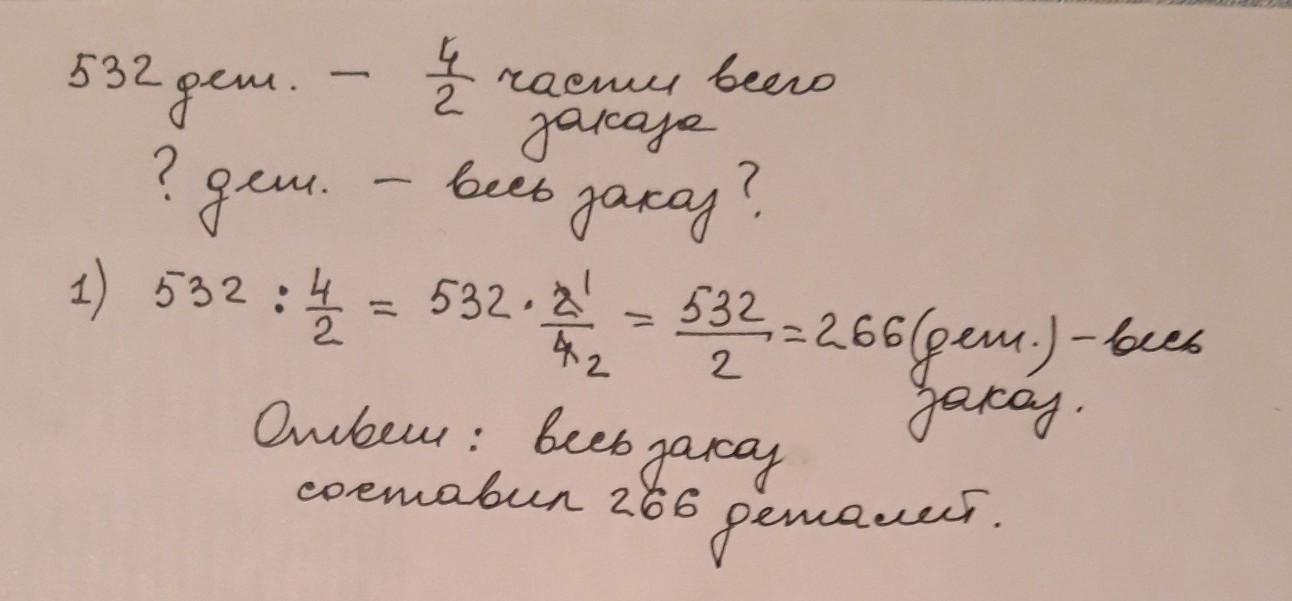 532 дет. — 4/2 части всего
заказа
? дет. — весь заказ?
1) 532 : 4/2 = 532 · 2¹/4₂ = 532/2 = 266 (дет.) – весь
заказ.
Ответ: весь заказ
составил 266 деталей.